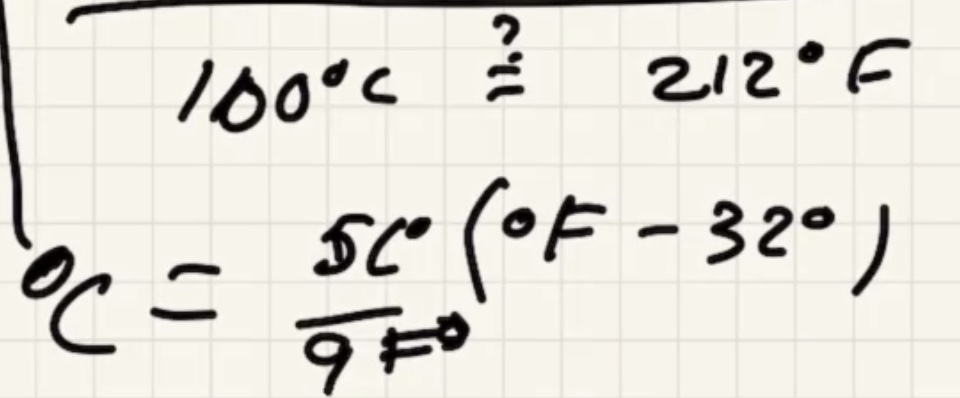 100°C ≟ 212°F
°C = 5C°/9F° (°F - 32°)